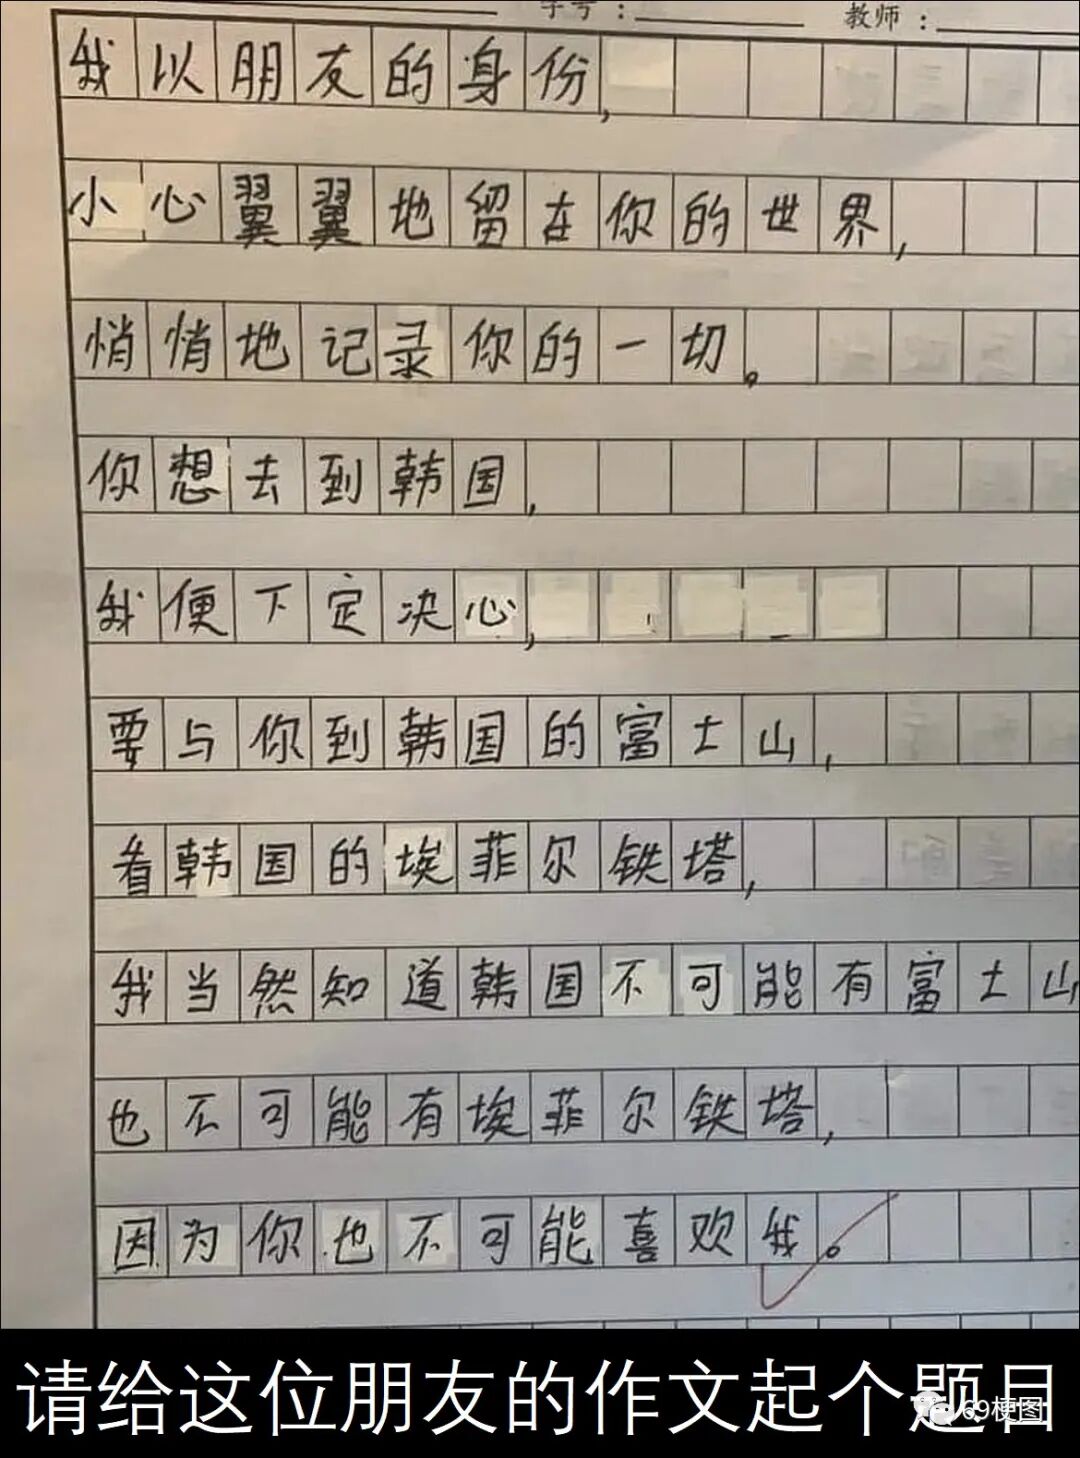 学号：
教师：
我以朋友的身份，
小心翼翼地留在你的世界，
悄悄地记录你的一切。
你想去到韩国，
我便下定决心，
要与你到韩国的富士山，
看韩国的埃菲尔铁塔，
我当然知道韩国不可能有富士山
也不可能有埃菲尔铁塔，
因为你也不可能喜欢我。
请给这位朋友的作文起个题目
69梗图